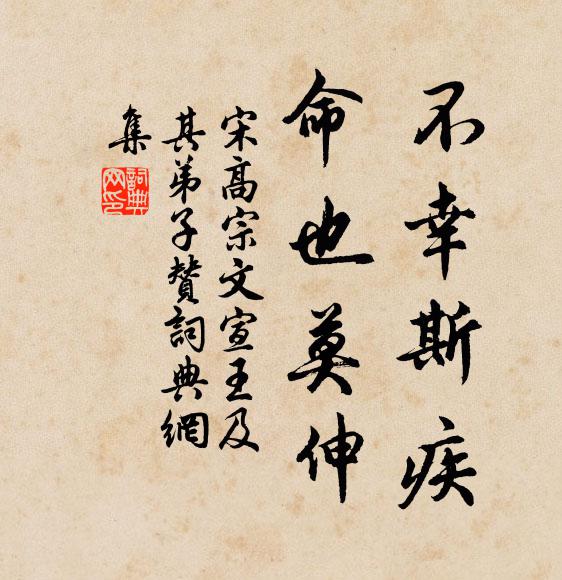 不幸斯疾
命也莫伸
宋高宗文宣王及
其弟子贊詞典網
集
詞典
网印